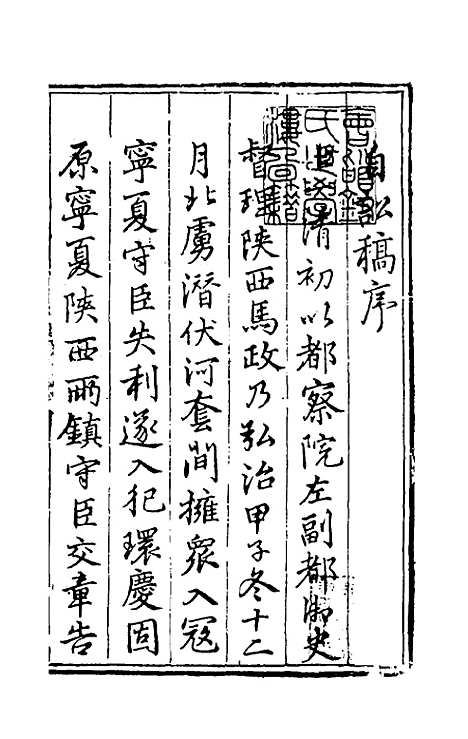 自訟稿序
清初以都察院左副都御史
督理陝西馬政乃弘治甲子冬十二
月北虜潛伏河套間擁衆入冦
寧夏守臣失利遂入犯環慶固
原寧夏陝西兩鎮守臣交章告